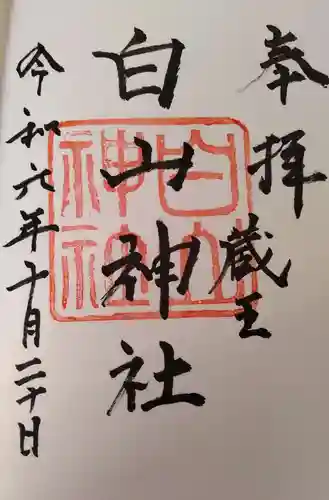 奉拝
蔵王
白山神社
令和六年十月二十日
白山
神社